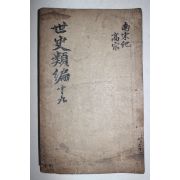 南宋紀
高宗
世史類編 十九